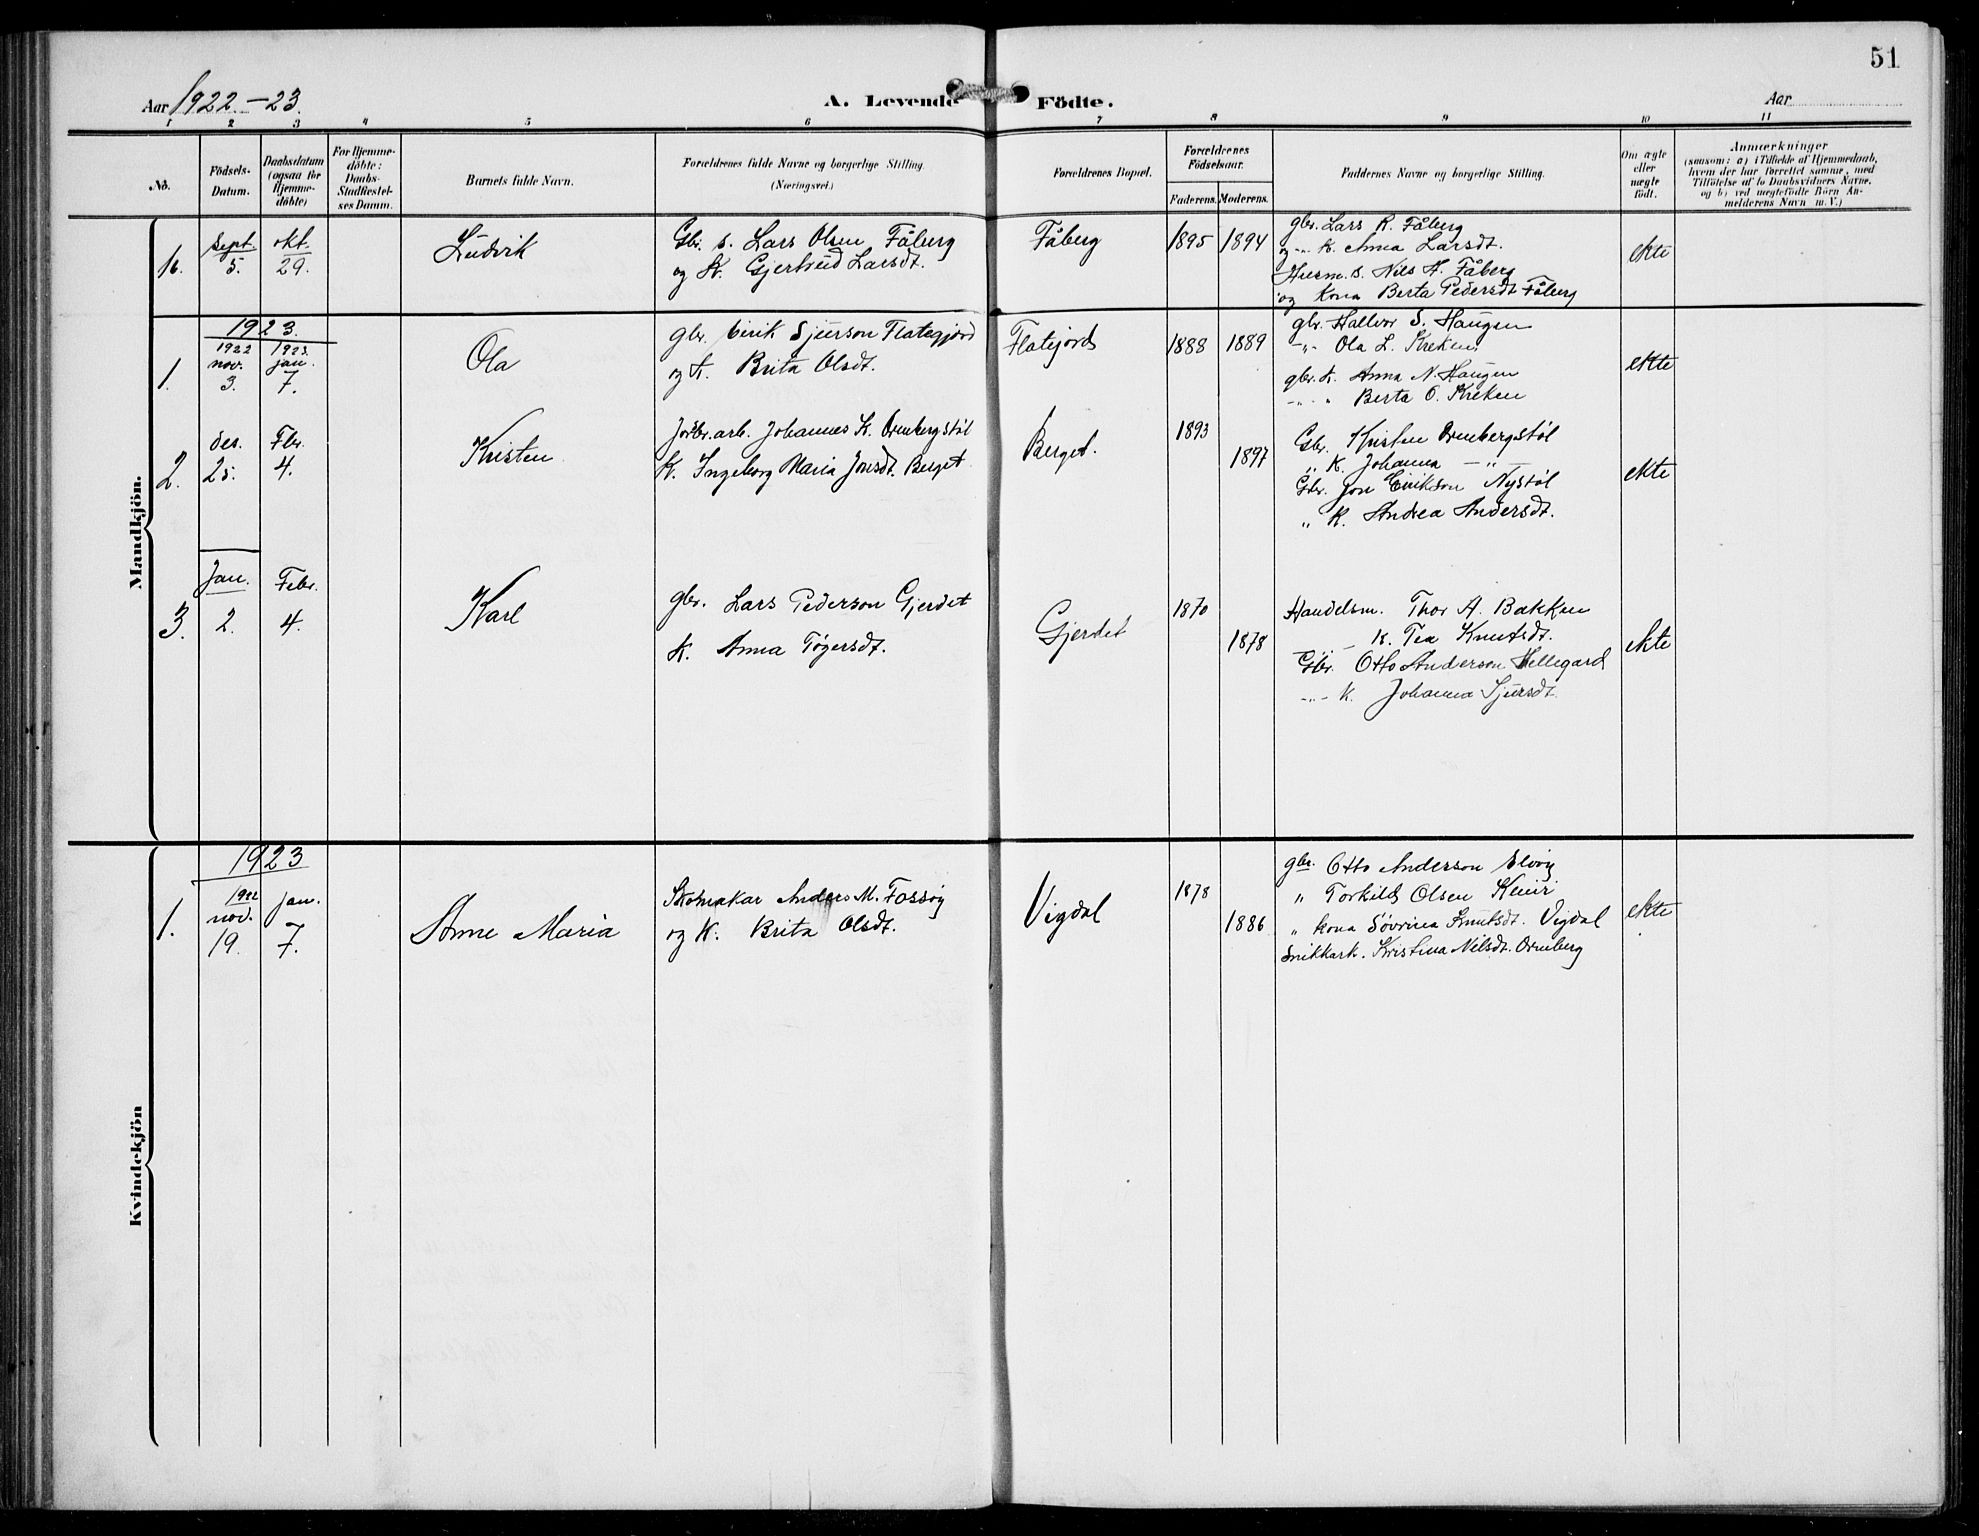 51
Aar 1922.-23.
A. Levende Födte.
Aar
1 2 3 4 5 6 7 8 9 10 11
No.
Födsels-
Datum.
Daabsdatum
(ogsaa for
Hjemme-
döbte)
For Hjemme-
döbte:
Daabs-
Stadfæstel-
ses Datum.
Barnets fulde Navn.
Forældrenes fulde Navne og borgerlige Stilling
(Næringsvei.)
Forældrenes Bopæl.
Forældrenes
Födselsaar.
Faderens. Moderens.
Faddernes Navne og borgerlige Stilling.
Om ægte
eller
uægte
født.
Anmærkninger
(saasom: a) i Tilfælde af Hjemmedaab,
hvem der har forrettet samme, med
Tilföielse af to Daabsvidners Navne,
og b) ved uægtefödte Börn An-
melderens Navn m. V.)
Mandkjön.
16. Sept. 5. okt. 29.
Ludvik
Gbr. s. Lars Olsen Fåberg
og K. Gjertrud Larsdt.
Fåberg
1895 1894
gbr. Lars R. Fåberg
og -"- K. Anna Larsdt.
Husm. s. Nils H. Fåberg
og Kona Berta Pedersdt Fåberg
ekte
1923.
1. 1922 nov. 3. 1923. jan. 7.
Ola
gbr. Eirik Sjurson Flategjord
og K. Brita Olsdt.
Flatejord
1888 1889
gbr. Hallvor S. Haugen
-"- Ola L. Kreken
gbr. K. Anna N. Haugen
-"- " Berta O. Kreken
ekte
2. des. 25. Fbr. 4.
Kristen
Jordbr. arb. Johannes K. Ormbergstøl
K. Ingeborg Maria Jonsdt. Berget
Berget.
1893
1897
Gbr. Kristen Ormbergstøl
" K. Johanna -"-
Gbr. Jon Eirikson Nystøl
" K. Andrea Andersdt.
ekte
3. Jan. 2. Febr. 4.
Karl
gbr. Lars Pederson Gjerdet
K. Anna Tøgersdt.
Gjerdet
1870
1878
Handelsm. Thor A. Bakken
-"- K. Tea Knutsdt.
Gbr. Otto Anderson Hellegard
-"- K. Johanna Sjursdt.
ekte
Kvindekjön
1923
1. 1922 nov. 19. jan. 7.
Anne Maria
Skomakar Anders M. Fossøy
og K. Brita Olsdt.
Vigdal
1878
1886
gbr. Otto Anderson Elvøy
" Torkild Olsen
" kona Søvrina Knutsdt. Vigdal
Snikkark. Kristina Nilsdt. Ormberg
ekte